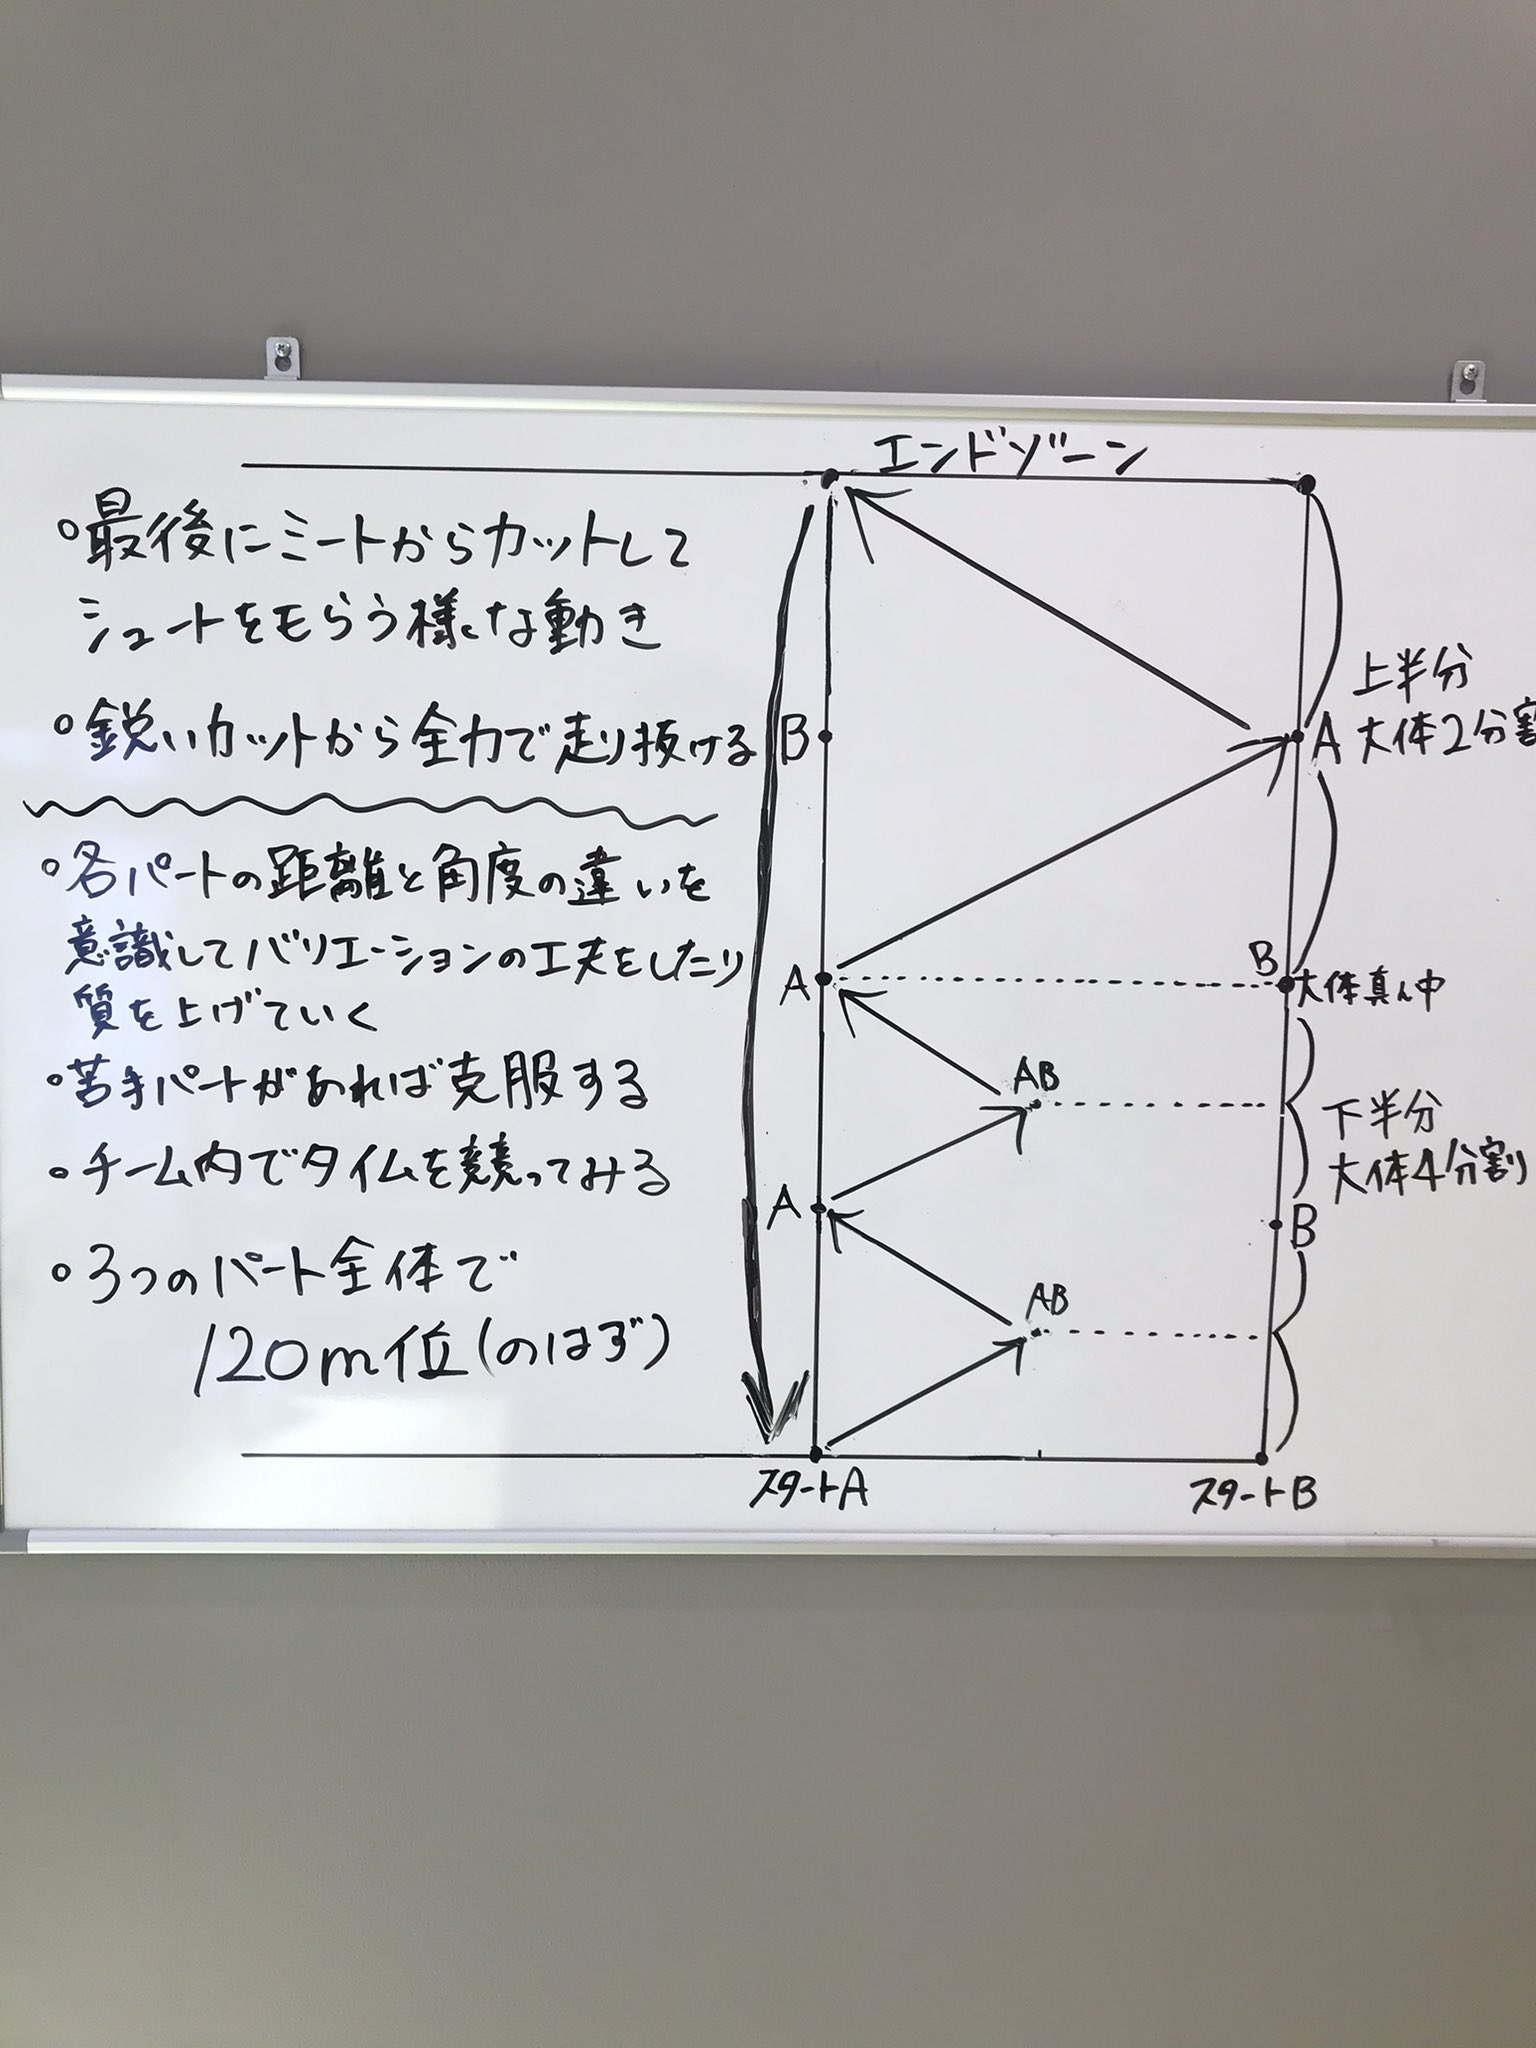 エンドゾーン
。最後にミートからカットして
シュートをもらう様な動き
。鋭いカットから全力で走り抜ける
B
A
上半分
大体2分割
。各パートの距離と角度の違いを
意識してバリエーションの工夫をしたり
質を上げていく
A
B
大体真ん中
・苦手パートがあれば克服する
AB
下半分
大体4分割
・チーム内でタイムを競ってみる
A
B
。3つのパート全体で
120m位(のはず)
AB
スタートA
スタートB